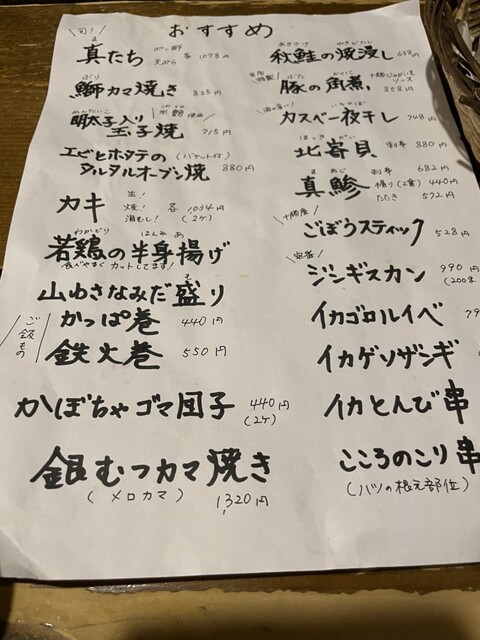 おすすめ
旬!
真たち ポン酢 天ぷら 各 1078円
鰤カマ焼き 825円
明太子入り
玉子焼 715円
エビとホタテの (バケット付)
タルタルオーブン焼 880円
カキ 生! 焼! 酒むし! 各 1034円 (2ケ)
若鶏の半身揚げ
食べやすくカットしてます!
山わさなみだ盛り
ご飯もの
かっぱ巻 440円
鉄火巻 550円
かぼちゃゴマ団子 440円 (2ケ)
銀むつカマ焼き
(メロカマ) 1,320円
秋鮭の焼浸し 638円
当店特製 豚の角煮 十勝じゃがいもソース 858円
カスベ一夜干し 748円
北寄貝 刺・串 880円
真鯵 刺・串 682円
握り(2貫) 440円
たたき 572円
十勝産
ごぼうスティック 528円
定番
ジンギスカン 990円
イカゴロルイベ
イカゲソザンギ
イカとんび串
こころのこり串
(ハツの根元部位)